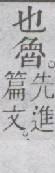 也魯。先進
篇文。